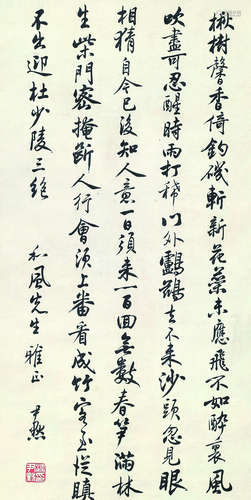 楸樹馨香倚釣磯斬新花蘂未應飛不如醉裏風
吹盡可忍醒時雨打稀門外鸕鶿去不來沙頭忽見眼
相猜自今已後知人意一日須來一百回無數春笋滿林
生柴門密掩斷人行會須上番看成竹客至從瞋
不出迎杜少陵三絕
和風先生雅正 尹默